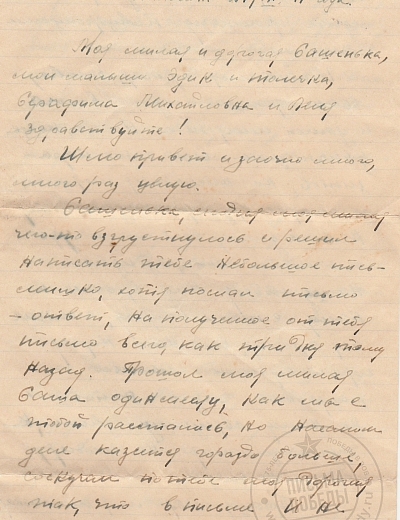 Моя милая и дорогая Сашенька,
мои малыши Эдик и Телечка,
Серафима Михайловна и
здравствуйте!
Шлю привет и заочно много,
много раз целую.
Сашенька, сегодня моя милая
что-то взгрустнулось и решил
написать тебе небольшое пись-
мишко, хотя послал письмо
-ответ, на полученное от тебя
письмо всего, как три дня тому
назад. Прошол моя милая
Саша один месяц, как мы с
тобой расстались, но на самом
деле кажется гораздо больше,
соскучил по тебе моя дорогая
так, что в письме и не
ПИСЬМА
ПОБЕДЫ